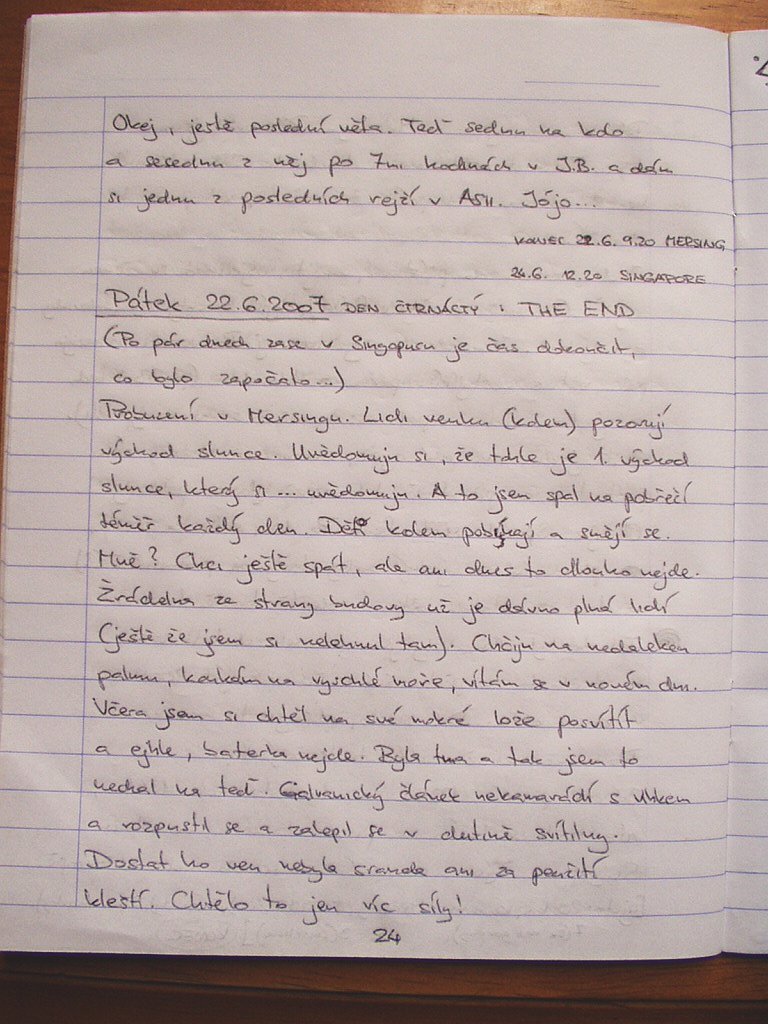 Okej, ještě poslední věta. Teď sednu na kolo
a sesednu z něj po 7mi hodinách v J.B. a dám
si jednu z posledních rejží v ASII. Jójo...
KONEC 22.6. 9.20 MERSING,
24.6. 12.20 SINGAPORE
Pátek 22.6.2007 DEN ČTRNÁCTÝ : THE END
(Po pár dnech zase v Singapuru je čas dokončit,
co bylo započato...)
Probuzení v Mersingu. Lidi venku (kolem) pozorují
východ slunce. Uvědomuju si, že tohle je 1. východ
slunce, který si ... uvědomuju. A to jsem spal na pobřeží
téměř každý den. Děti kolem pobíhají a smějí se.
Mně? Chci ještě spát, ale ani dnes to dlouho nejde.
Žrádelna ze strany budovy už je dávno plná lidí
(ještě že jsem si nelehnul tam). Chčiju na nedalekou
palmu, koukám na vyschlé moře, vítám se v novém dni.
Včera jsem si chtěl na své mokré lože posvítit
a ejhle, baterka nejde. Byla tma a tak jsem to
nechal na teď. Galvanický článek nekamarádí s vlhkem
a rozpustil se a zalepil se v dutině svítilny.
Dostat ho ven nebyla sranda ani za použití
kleští. Chtělo to jen víc síly!
24